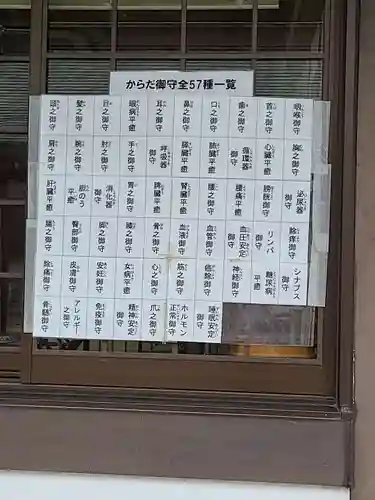 からだ御守全57種一覧
頭之御守
髪之御守
目之御守
眼病平癒
耳之御守
鼻之御守
口之御守
歯之御守
首之御守
咽喉御守
肩之御守
腕之御守
肘之御守
手之御守
呼吸器御守
膵臓平癒
肺臓平癒
循環器御守
心臓平癒
胸之御守
肝臓平癒
胆のう平癒
消化器御守
胃之御守
脾臓平癒
腎臓平癒
腰之御守
腰痛平癒
膀胱御守
泌尿器御守
腸之御守
臀部御守
脚之御守
膝之御守
骨之御守
血液御守
血管御守
血圧安定御守
リンパ御守
除痒御守
除痛御守
皮膚御守
安妊御守
女病平癒
心之御守
筋之御守
癌除御守
神経御守
糖尿病平癒
シナプス御守
骨髄御守
アレルギー之御守
免疫御守
精神安定御守
爪之御守
ホルモン正常御守
睡眠安定御守